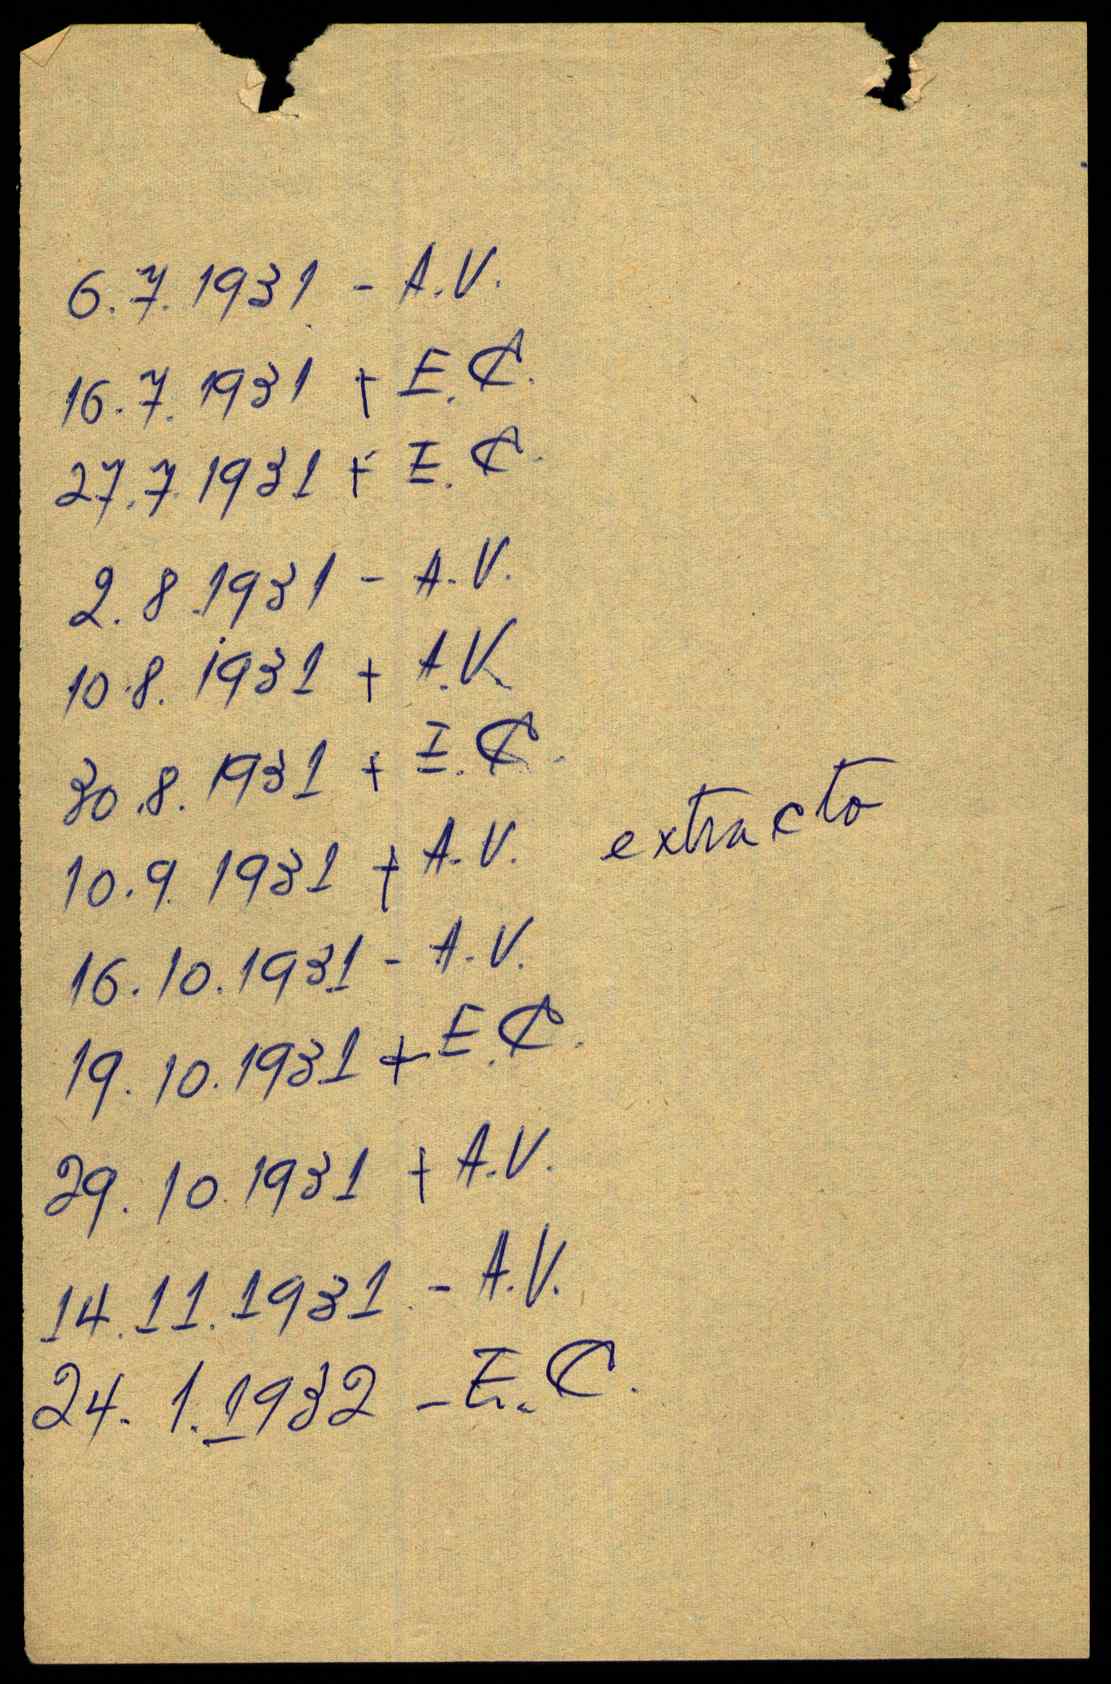 6.7.1931 - A.V.
16.7.1931 + E.C.
27.7.1931 + E.C.
2.8.1931 - A.V.
10.8.1931 + A.V.
30.8.1931 + E.C.
10.9.1931 + A.V. extracto
16.10.1931 - A.V.
19.10.1931 + E.C.
29.10.1931 + A.V.
14.11.1931 - A.V.
24.1.1932 - E.C.